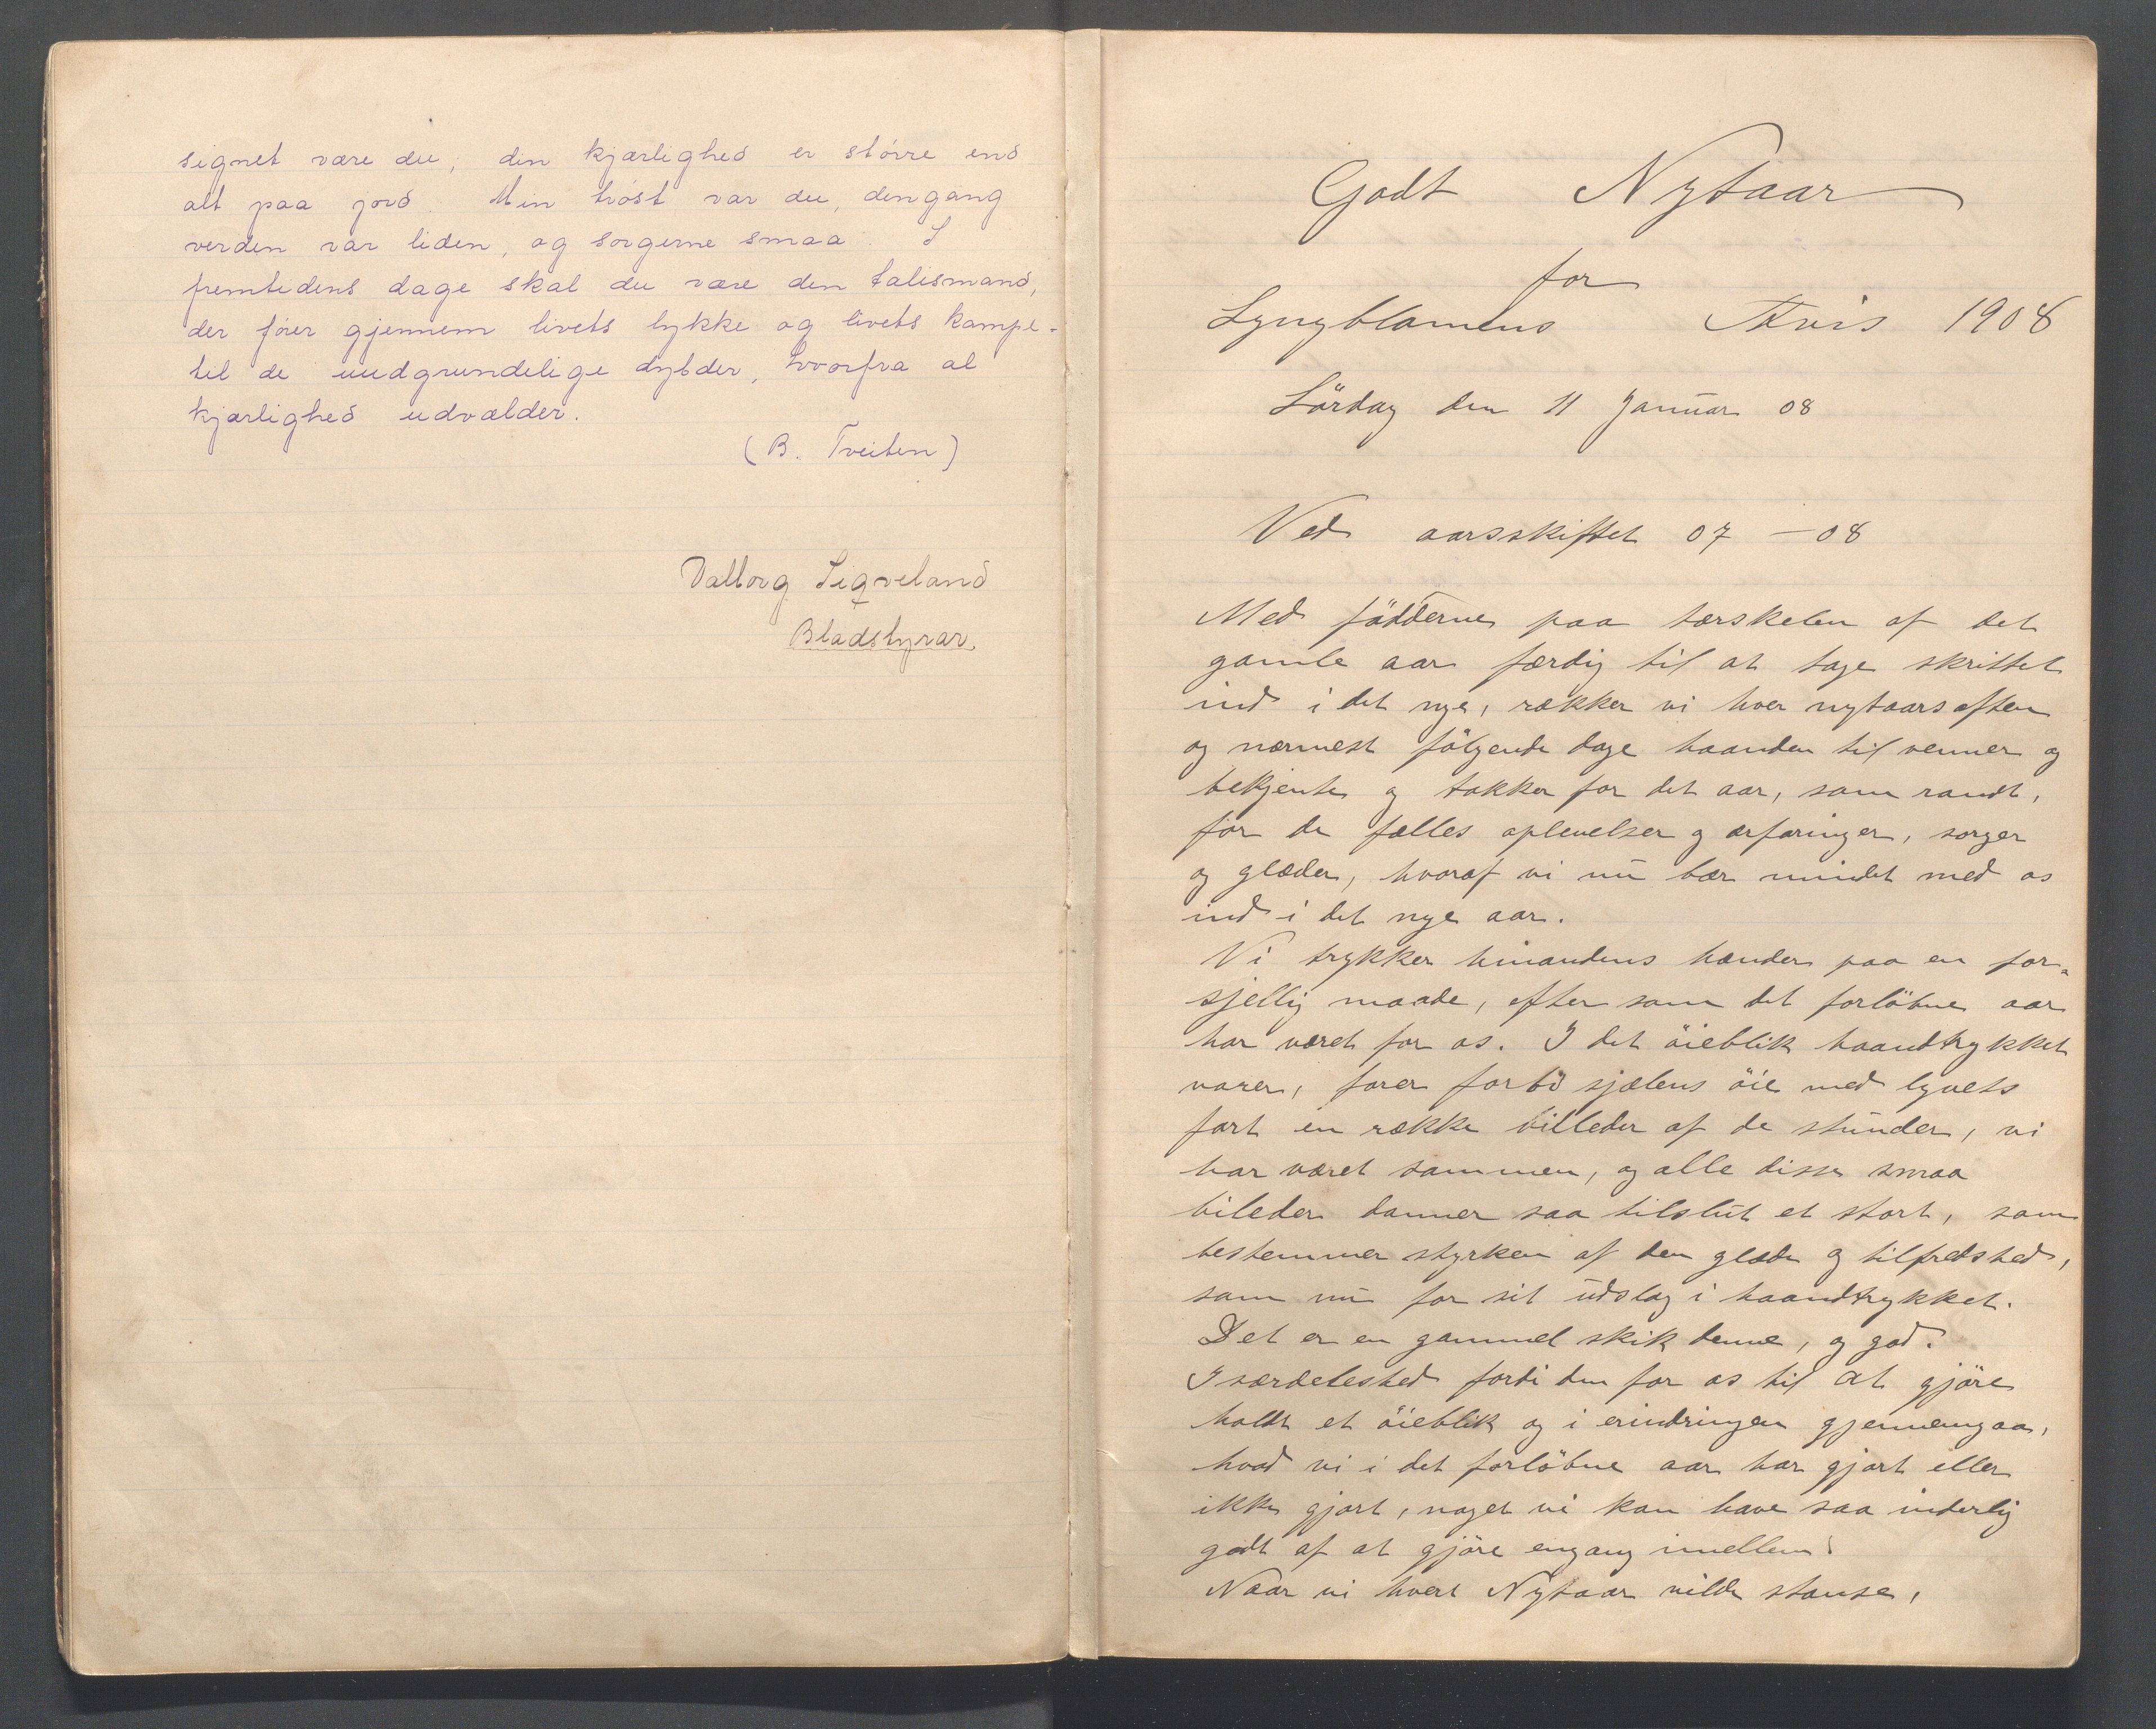 signet være du, din kjærlighed er større end
alt paa jord. Min trøst var du, dengang
verden var liden, og sorgerne smaa. I
fremtidens dage skal du være den talismand,
der fører gjennem livets lykke og livets kampe -
til de uudgrundelige dybder, hvorfra al
kjærlighed udvælder.
(B. Tveiten)
Valborg Sigveland
Bladstyrar.
Godt Nytaar
for
Lyngblomens Avis 1908
Lördag den 11 Januar 08
Ved aarsskiftet 07 – 08
Med födderne paa tærskelen af det
gamle aar færdig til at tage skrittet
ind i det nye, rækker vi hver nytaarsaften
og nærmest fölgende dage haanden til venner og
bekjente og takker for det aar, som randt,
for de fælles oplevelser og erfaringer, sorger
og glæder, hvoraf vi nu bær mindet med os
ind i det nye aar.
Vi trykker hinandens hænder paa en for-
sjellig maade, efter som det forløbne aar
har været for os. I det öieblik haandtrykket
varer, farer forbi sjælens öie med lynets
fart en række billeder af de stunder, vi
har været sammen, og alle disse smaa
bileder danner saa tilslut et stort, som
bestemmer styrken af den glæde og tilfredshed,
som nu faar sit udslag i haandtrykket.
Det er en gammel skik denne, og god.
Isærdeleshed fordi den faar os til at gjöre
holdt et öieblik og i erindringen gjennemgaa,
hvad vi i det forlöbne aar har gjort eller
ikke gjort, noget vi kan have saa inderlig
godt af at gjöre engang imellem.
Naar vi hvert Nytaar vilde stanse,